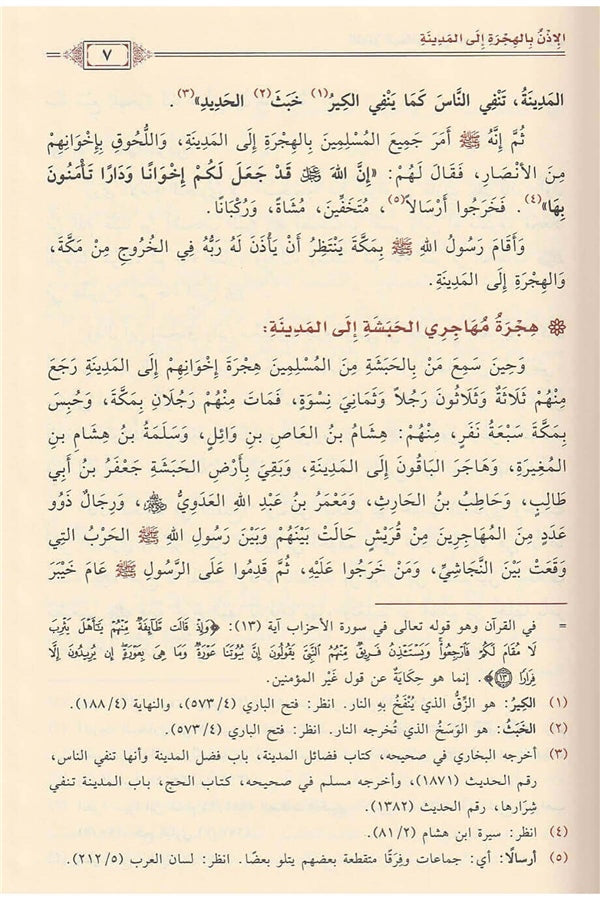 الإِذْنُ بِالهِجْرَةِ إِلَى المَدِينَةِ
٧
المَدِينَةُ، تَنْفِي النَّاسَ كَمَا يَنْفِي الكِيرُ(١) خَبَثَ(٢) الحَدِيدِ»(٣).
ثُمَّ إِنَّهُ ﷺ أَمَرَ جَمِيعَ المُسْلِمِينَ بِالهِجْرَةِ إِلَى المَدِينَةِ، وَاللُّحُوقِ بِإِخْوَانِهِمْ
مِنَ الأَنْصَارِ، فَقَالَ لَهُمْ: «إِنَّ اللهَ ﷻ قَدْ جَعَلَ لَكُمْ إِخْوَانًا وَدَارًا تَأْمَنُونَ
بِهَا»(٤). فَخَرَجُوا أَرْسَالًا(٥)، مُتَخَفِّينَ، مُشَاةً، وَرُكْبَانًا.
وَأَقَامَ رَسُولُ اللهِ ﷺ بِمَكَّةَ يَنْتَظِرُ أَنْ يَأْذَنَ لَهُ رَبُّهُ فِي الخُرُوجِ مِنْ مَكَّةَ،
وَالهِجْرَةِ إِلَى المَدِينَةِ.
هِجْرَةُ مُهَاجِرِي الحَبَشَةِ إِلَى المَدِينَةِ:
وَحِينَ سَمِعَ مَنْ بِالحَبَشَةِ مِنَ المُسْلِمِينَ هِجْرَةَ إِخْوَانِهِمْ إِلَى المَدِينَةِ رَجَعَ
مِنْهُمْ ثَلَاثَةٌ وَثَلَاثُونَ رَجُلًا وَثَمَانِي نِسْوَةٍ، فَمَاتَ مِنْهُمْ رَجُلَانِ بِمَكَّةَ، وَحُبِسَ
بِمَكَّةَ سَبْعَةُ نَفَرٍ، مِنْهُمْ: هِشَامُ بنُ العَاصِ بنِ وَائِلٍ، وَسَلَمَةُ بنُ هِشَامِ بنِ
المُغِيرَةِ، وَهَاجَرَ البَاقُونَ إِلَى المَدِينَةِ، وَبَقِيَ بِأَرْضِ الحَبَشَةِ جَعْفَرُ بنُ أَبِي
طَالِبٍ، وَحَاطِبُ بنُ الحَارِثِ، وَمَعْمَرُ بنُ عَبْدِ اللهِ العَدَوِيُّ ﵃، وَرِجَالٌ ذَوُو
عَدَدٍ مِنَ المُهَاجِرِينَ مِنْ قُرَيْشٍ حَالَتْ بَيْنَهُمْ وَبَيْنَ رَسُولِ اللهِ ﷺ الحَرْبُ التِي
وَقَعَتْ بَيْنَ النَّجَاشِيِّ، وَمَنْ خَرَجُوا عَلَيْهِ، ثُمَّ قَدِمُوا عَلَى الرَّسُولِ ﷺ عَامَ خَيْبَرَ
= في القرآن وهو قوله تعالى في سورة الأحزاب آية (١٣): ﴿وَإِذْ قَالَت طَّآئِفَةٌ مِّنْهُمْ يَٰٓأَهْلَ يَثْرِبَ
لَا مُقَامَ لَكُمْ فَٱرْجِعُوا۟ وَيَسْتَـْٔذِنُ فَرِيقٌ مِّنْهُمُ ٱلنَّبِىَّ يَقُولُونَ إِنَّ بُيُوتَنَا عَوْرَةٌ وَمَا هِىَ بِعَوْرَةٍ إِن يُرِيدُونَ إِلَّا
فِرَارًا ۝١٣﴾. إنما هو حِكايَةٌ عن قول غَيْرِ المؤمنين.
(١) الكِيرُ: هو الزِّقُّ الذي يُنْفَخُ بهِ النار. انظر: فتح الباري (٥٧٣/٤)، والنهاية (١٨٨/٤).
(٢) الخَبَثُ: هو الوَسَخُ الذي تُخرجه النار. انظر: فتح الباري (٥٧٣/٤).
(٣) أخرجه البخاري في صحيحه، كتاب فضائل المدينة، باب فضل المدينة وأنها تنفي الناس،
رقم الحديث (١٨٧١)، وأخرجه مسلم في صحيحه، كتاب الحج، باب المدينة تنفي
شِرارها، رقم الحديث (١٣٨٢).
(٤) انظر: سيرة ابن هشام (٨١/٢).
(٥) أرسالًا: أي: جماعات وفِرَقًا متقطعة بعضهم يتلو بعضًا. انظر: لسان العرب (٢١٢/٥).